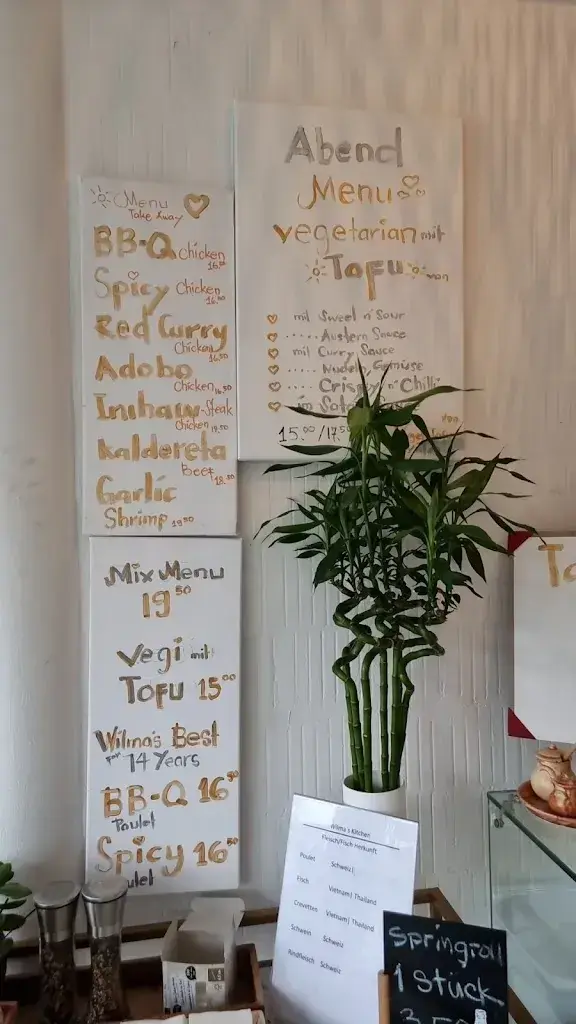 Menu
Take Away
BB-Q Chicken
16.50
Spicy Chicken
16.50
Red Curry
Chicken 16.50
Adobo
Chicken 16.50
Inihaw-Steak
Chicken 19.50
Kaldereta
Beef 18.50
Garlic
Shrimp 19.50
Abend
Menu
vegetarian mit
Tofu von
mit Sweet n' Sour
..... Austern Sauce
mit Curry Sauce
..... Nudeln, Gemüse
..... Crispy n' Chilli
in
15.00/17.50
von
Mix Menu
19 50
Vegi mit
TOFU 15 00
Wilma's Best
for 14 Years
BB-Q 16 50
Poulet
Spicy 16 50
Wilma's Kitchen
Fleisch/Fisch Herkunft
Poulet Schweiz|
Fisch Vietnam| Thailand
Crevetten Vietnam| Thailand
Schwein Schweiz
Rindfleisch Schweiz
Springroll
1 Stück
3.50